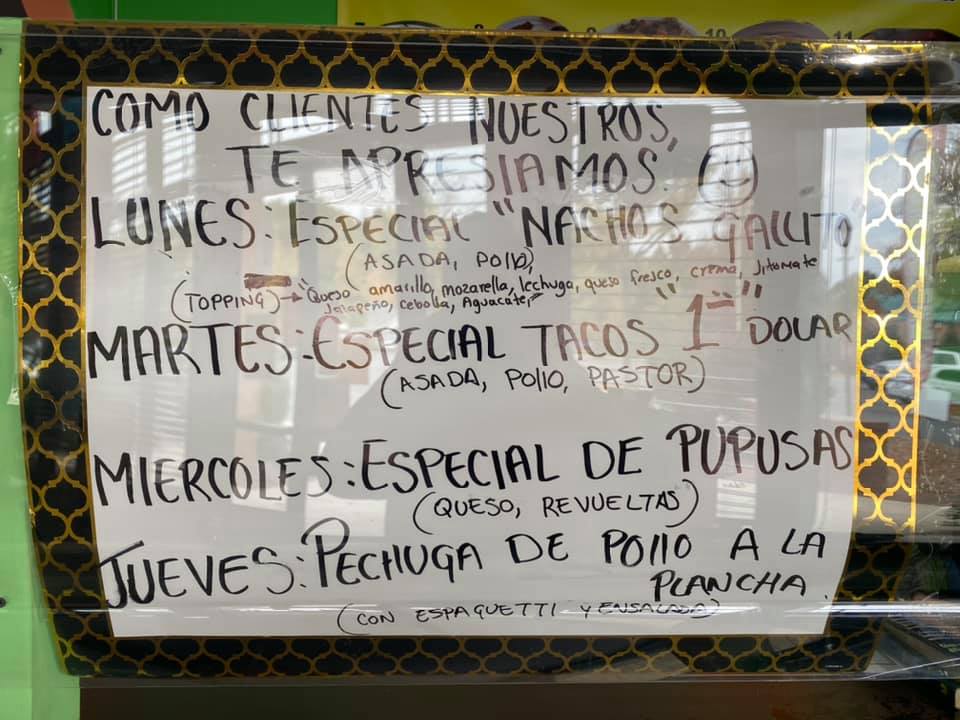 8 9 10 11
COMO CLIENTES NUESTROS,
TE APRESIAMOS.
LUNES: ESPECIAL "NACHOS GALLITO"
(ASADA, POllO)
(TOPPING) → "Queso amarillo, mozarella, lechuga, queso fresco, crema, Jitomate
Jalapeño, cebolla, Aguacate,"
MARTES: ESPECIAL TACOS "1" DOLAR
(ASADA, POllO, PASTOR)
MIERCOLES: ESPECIAL DE PUPUSAS
(QUESO, REVUELTAS)
JUEVES: PECHUGA DE POllO A LA
PLANCHA.
(CON ESPAGUETTI Y ENSALADA)